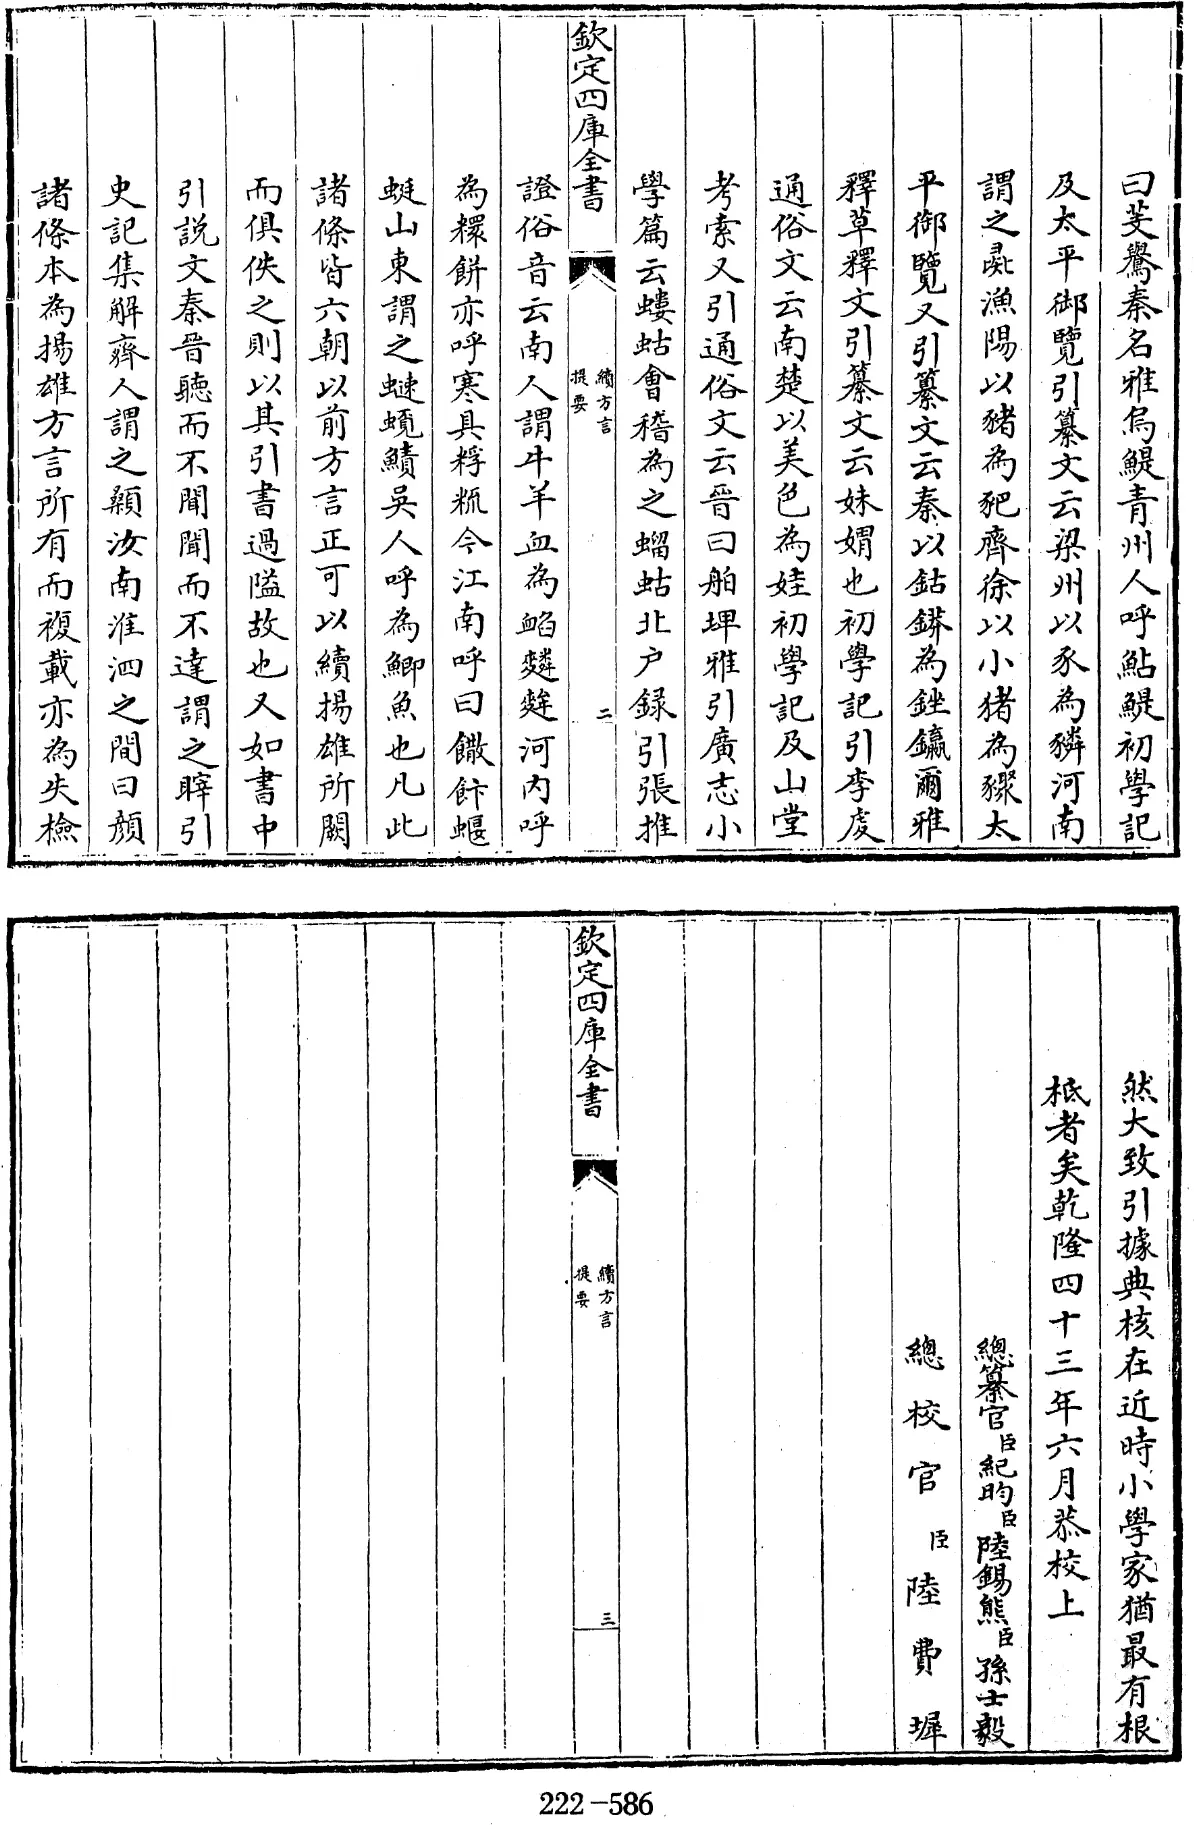 曰芰鷽秦名雅烏鯷青州人呼鮎鯷初學記
及太平御覽引纂文云梁州以豕為䝏河南
謂之彘漁陽以豬為豝齊徐以小猪為䝋太
平御覽又引纂文云秦以鈷鏻為銼鑹爾雅
釋草釋文引纂文云妹媦也初學記引李虔
通俗文云南楚以美色為娃初學記及山堂
考索又引通俗文云晉曰舶埤雅引廣志小
學篇云螻蛄會稽為之䗂蛄北户録引張推
欽定四庫全書
續方言
提要
二
證俗音云南人謂牛羊血為䘓䴲䴰河内呼
為粿餅亦呼寒具粰䊗今江南呼曰䊝飰蝘
蜓山東謂之蝀蜆鰿吳人呼為鯽魚也凡此
諸條皆六朝以前方言正可以續揚雄所闕
而俱佚之則以其引書過隘故也又如書中
引説文秦晉聽而不聞聞而不達謂之䏁引
史記集解齊人謂之顙汝南淮泗之間曰顔
諸條本為揚雄方言所有而複載亦為失檢
然大致引據典核在近時小學家猶最有根
柢者矣乾隆四十三年六月恭校上
總纂官臣紀昀臣陸錫熊臣孫士毅
總校官臣陸費墀
欽定四庫全書
續方言
提要
三
222-586